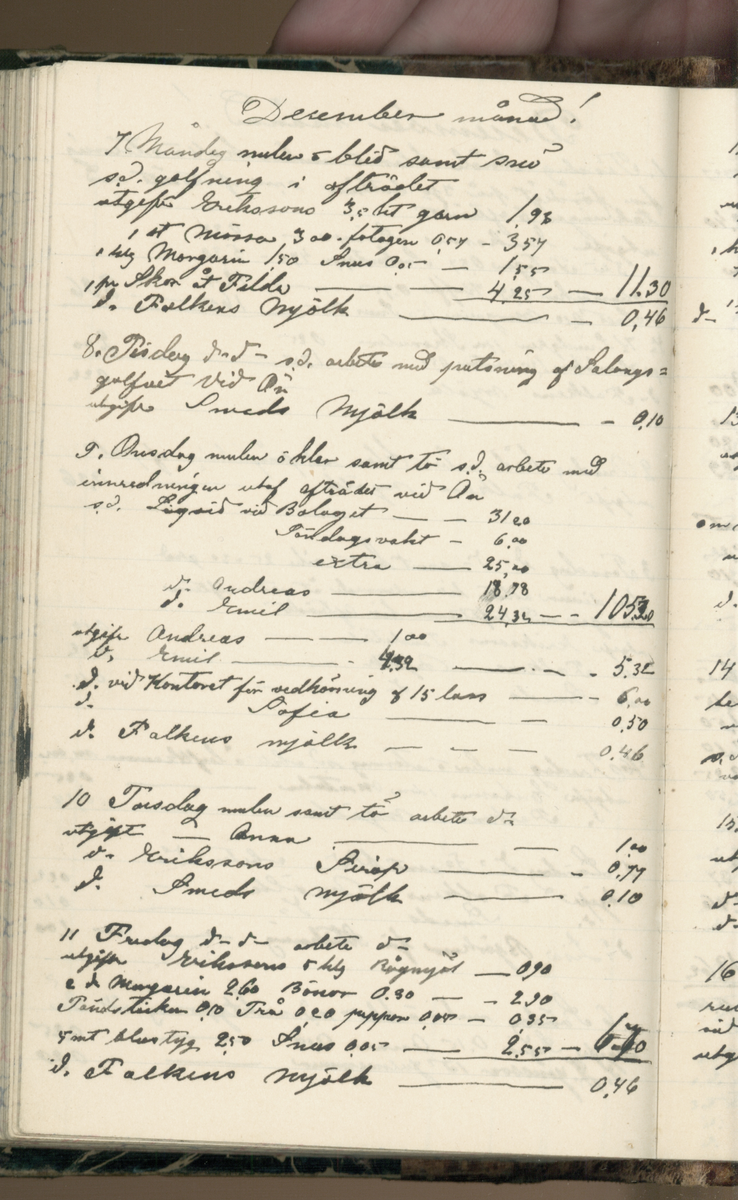 December månad!
7 Måndag mulen o blid samt snö
s.d. golfning i afträdet
utgifr Erikssons 3,5 ht garn 1,98
1 st Mössa 3 00 fotogen 0,54 - 3 54
1 klg Margarin 1,50 Snus 0,05 - 1,55
1 pr Skor åt Filda 4 25 - 11.30
d. Falkens Mjölk - 0,46
8. Tisdag d-d- s.d. arbete med putsning af Salongs=
golfvet vid Ån
utgifr Smeds Mjölk - 0,10
9. Onsdag mulen o klar samt tö s.d. arbete med
inredningen utaf afträdet vid Ån
s.d. Liqvid vid Bolaget - 31 20
Söndagsvakt - 6,00
extra 25,00
d. Andreas 18,78
d. Emil 24,32 -
utgifr Andreas 1 00
d. Emil 4,32 - 5,32
d. vid Kontoret för vedkörning af 15 lass 6,00
d. Sofia 0,50
d. Falkens mjölk 0,46
10 Torsdag mulen samt tö arbete d-
utgift Anna 1,00
d. Erikssons Sirap 0,77
d. Smeds Mjölk 0,10
11 Fredag d-d- arbete d-
utgifr Erikssons 5 klg Rågmjöl 0 90
2 d. Margarin 2,60 Bönor 0.30 - 2,90
Tändstickor 0,10 Trå 0,20 peppar 0,05 - 0,35
5 mt blustyg 2,50 Snus 0,05 - 2,55 - 6,70
d. Falkens Mjölk 0,46